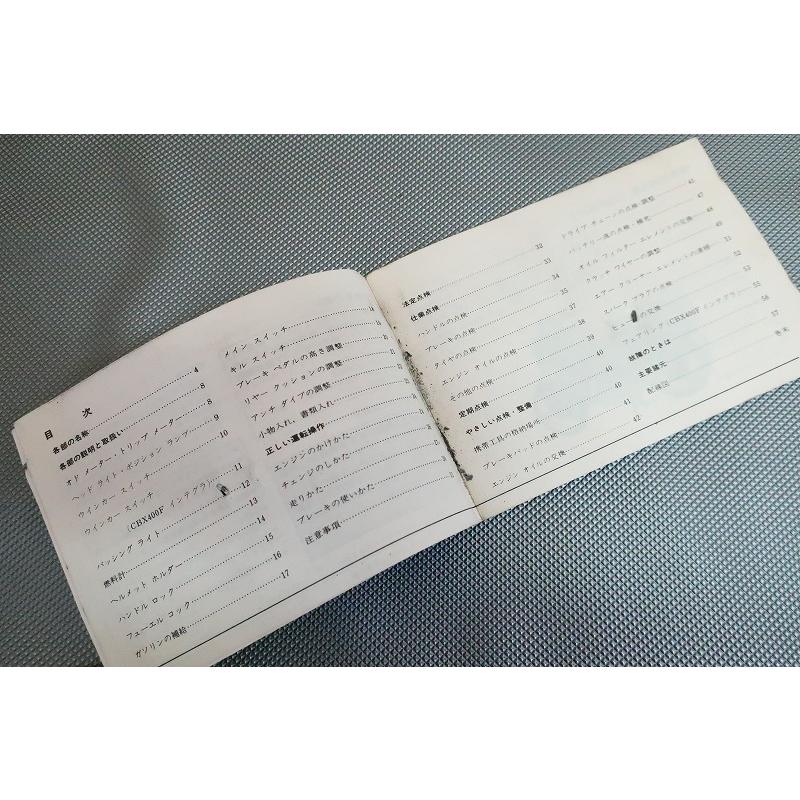 目 次
各部の名称 4
各部の説明と取扱い 8
オド メーター・トリップ メーター 8
ヘッド ライト・ポジション ランプ 9
ウインカー スイッチ 10
ウインカー スイッチ
(CBX400F インテグラ) 11
パッシング ライト 12
燃料計 13
ヘルメット ホルダー 14
ハンドル ロック 15
フューエル コック 16
ガソリンの補給 17
メイン スイッチ
キル スイッチ
ブレーキ ペダルの高さ調整
リヤー クッションの調整
アンチ ダイブの調整
小物入れ、書類入れ
正しい運転操作
エンジンのかけかた
チェンジのしかた
走りかた
ブレーキの使いかた
注意事項
法定点検 32
仕業点検 33
ハンドルの点検 34
ブレーキの点検 35
タイヤの点検 37
エンジン オイルの点検 38
その他の点検 39
定期点検 40
やさしい点検・整備 40
携帯工具の格納場所 41
ブレーキパッドの点検 42
エンジン オイルの交換
ドライブ チェーンの点検・調整 45
バッテリー液の点検・補充 47
オイル フィルター エレメントの交換 48
クラッチ ワイヤーの調整 49
エアー クリーナー エレメントの清掃 51
スパーク プラグの点検 52
ヒューズの交換 53
フェアリング(CBX400F インテグラ) 55
故障のときは 56
主要諸元 57
配線図 巻末